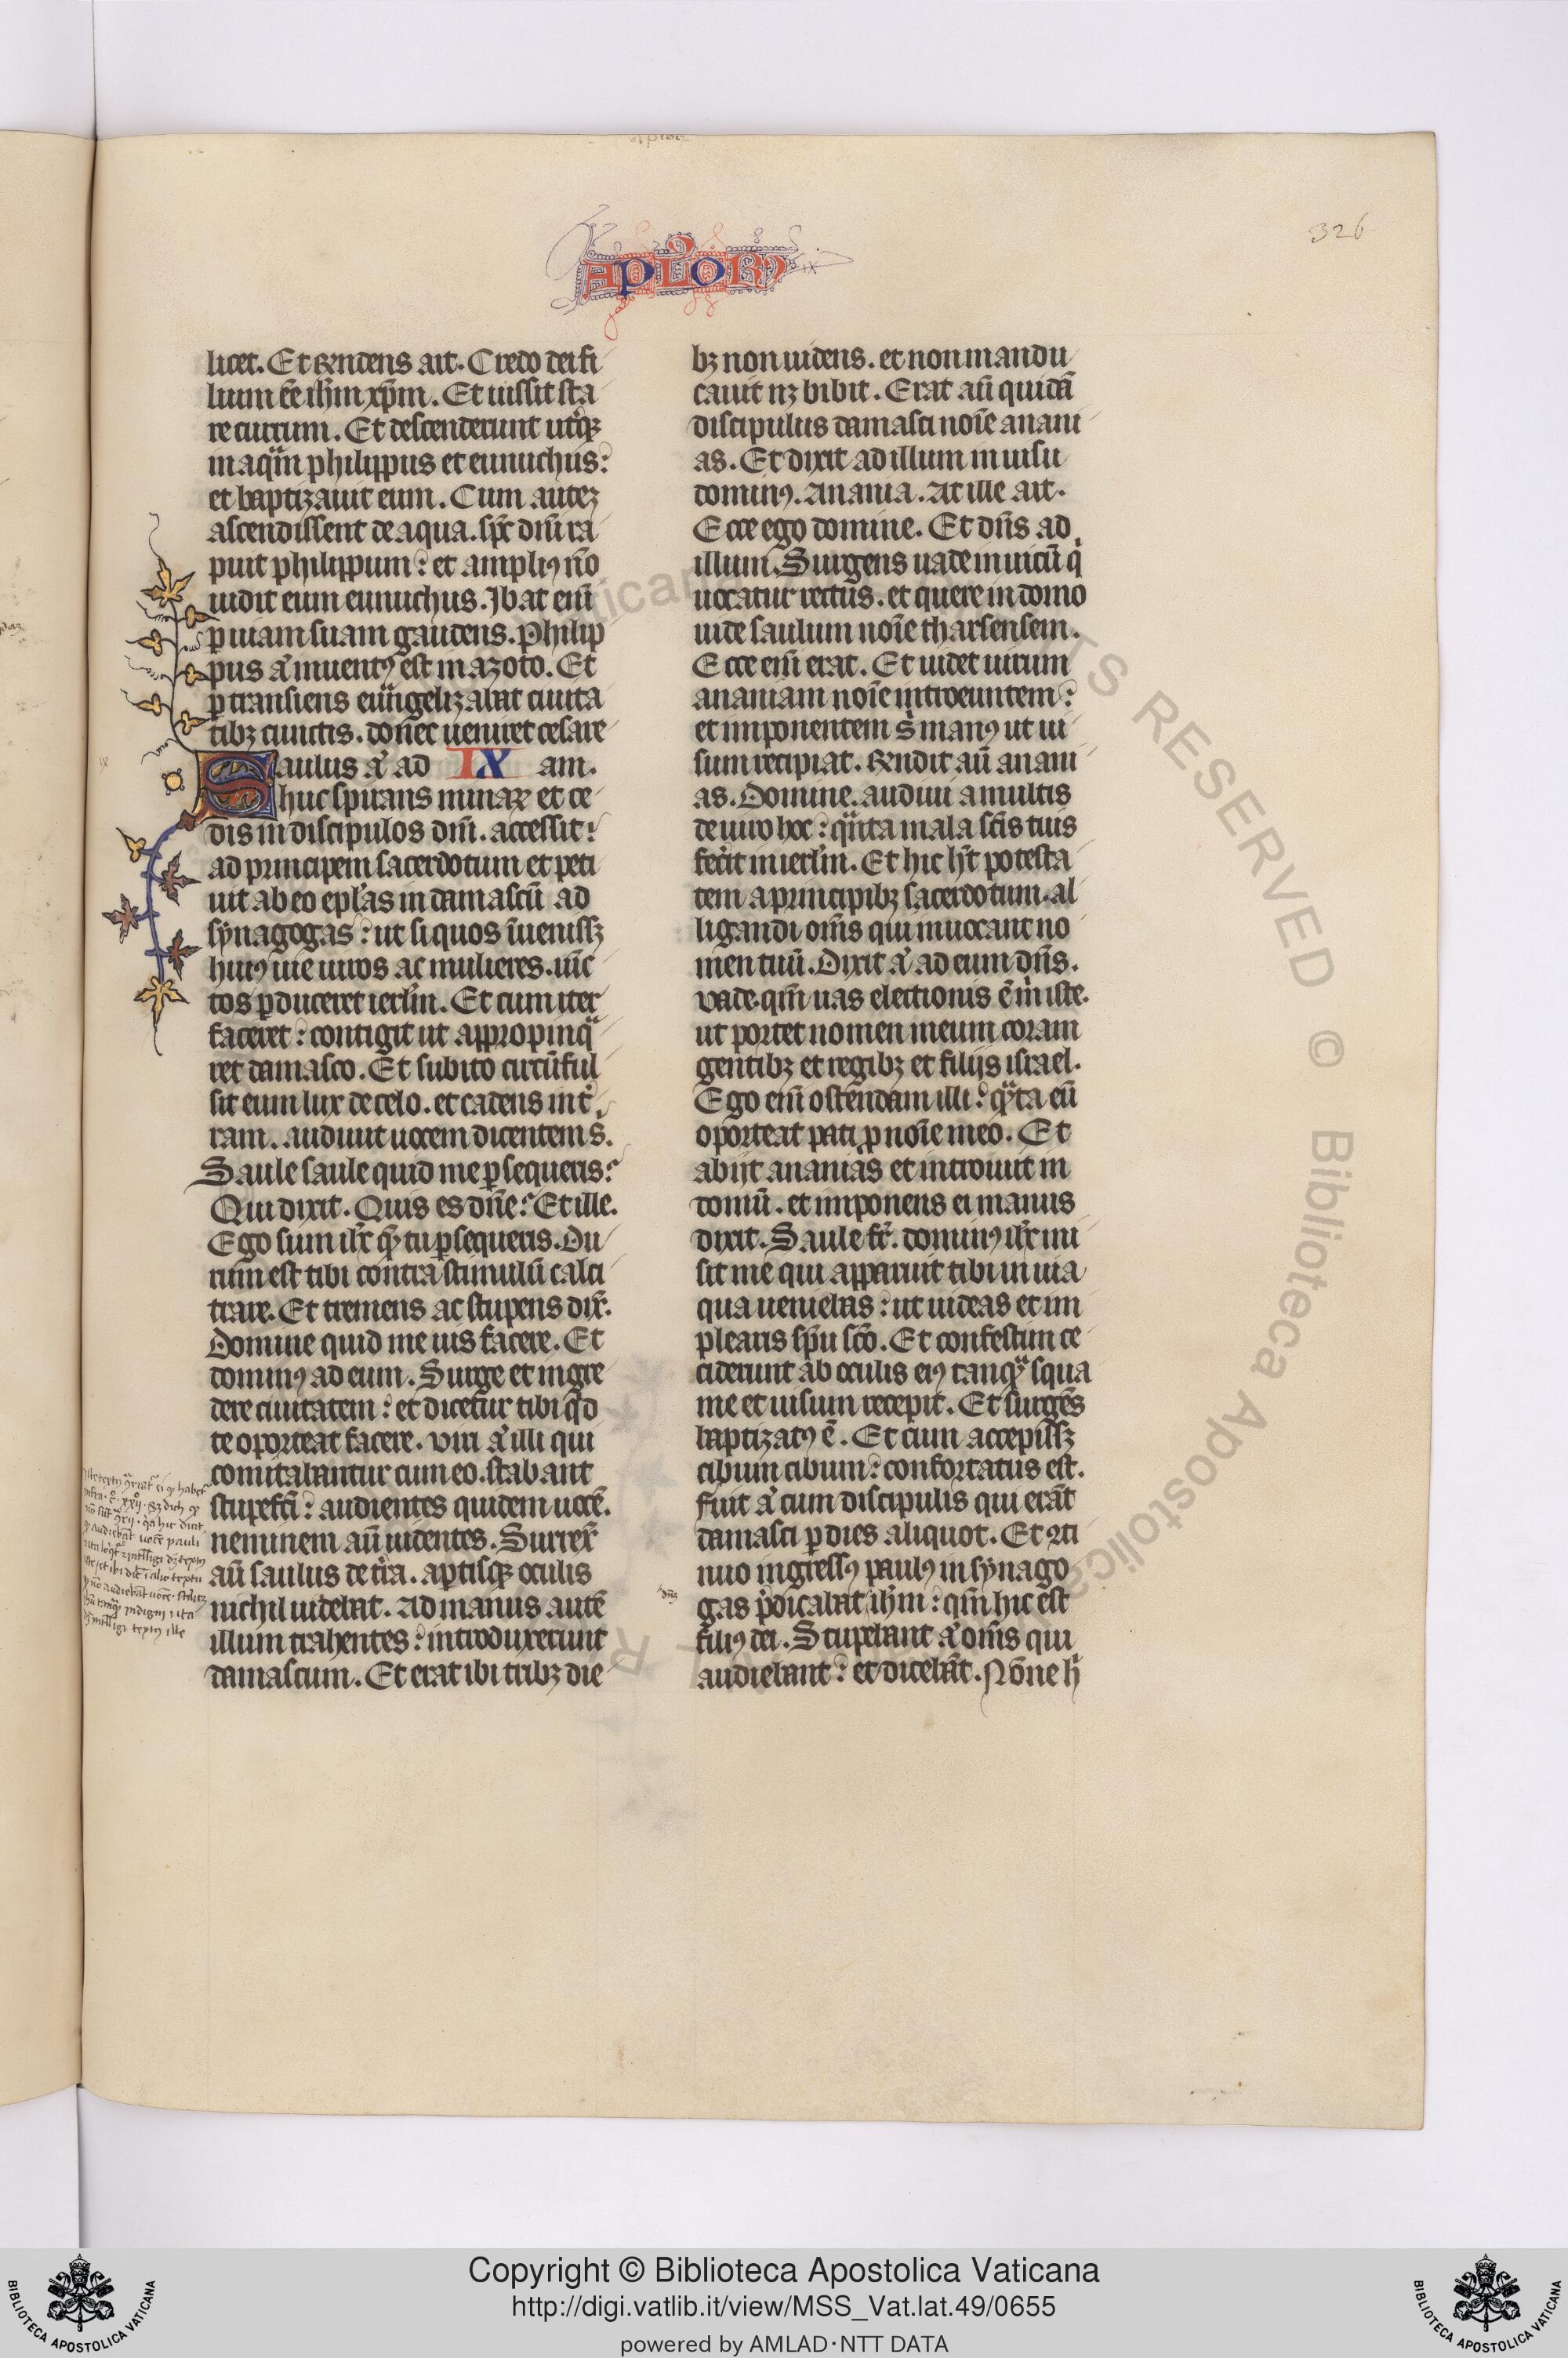 326
APLORꝫ
licet. Et rñdens ait. Credo dei fi
lium eē ihm xp̄m. Et iussit sta
re currum. Et descenderunt utqꝫ
in aqᵃm philippus et eunuchus:
et baptizauit eum. Cum autez
ascendissent de aqua. spc̄ dnī ra
puit philippum: et ampliꝰ nō
uidit eum eunuchus. Ibat enī
ꝑ uiam suam gaudens. Philip
pus aͥ inuentꝰ est in azoto. Et
ꝑtransiens euᵃngelizabat ciuita
tibꝫ cunctis. donec ueniret cesare
Saulus aͥ ad IX am.
huc spirans minaꝝ et ce
dis in discipulos dnī. accessit:
ad principem sacerdotum et peti
uit ab eo epl'as in damascū ad
synagogas: ut si quos īuenissꝫ
huiꝰ uie uiros ac mulieres. uīc
tos ꝑduceret ierl'm. Et cum iter
faceret: contigit ut appropinqᵃ
ret damasco. Et subito circūful
sit eum lux de celo. et cadens in t'
ram. audiuit uocem dicentem s'.
Saule saule quid me ꝑsequeris:
Qui dixit. Quis es dn̄e: Et ille.
Ego sum ihc̄ qꝫ tu ꝑsequeris. Du
rum est tibi contra stimulū calci
trare. Et tremens ac stupens dix̄.
Domine quid me uis facere. Et
dominꝰ ad eum. Surge et ingre
dere ciuitatem: et dicetur tibi qͥd
te oporteat facere. Viri aͥ illi qui
comitabantur cum eo. stabant
stupefcī: audientes quidem uocē.
neminem aū uidentes. Surrex̄
aū saulus de tr̄a. aptisqꝫ oculis
nichil uidebat. Ad manus autē
illum trahentes: introduxerunt
damascum. Et erat ibi tribꝫ die
bꝫ non uidens. et non mandu
cauit nꝫ bibit. Erat aū quidā
discipulus damasci noīe anani
as. Et dixit ad illum in uisu
dominꝰ. Anania. At ille ait.
Ecce ego domine. Et dn̄s ad
illum. Surgens uade in uicū qͥ
uocatur rectus. et quere in domo
iude saulum noīe tharsensem.
Ecce enī erat. Et uidet uirum
ananiam noīe introeuntem:
et imponentem s' manꝰ ut ui
sum recipiat. Rn̄dit aū anani
as. Domine. audiui a multis
de uiro hoc: qᵃnta mala scīs tuis
fecit in ierl'm. Et hic ht potesta
tem a principibꝫ sacerdotum. al
ligandi om̄s qui inuocant no
men tuū. Dixit aͥ ad eum dn̄s.
Vade. qm̄ uas electionis ē m' iste.
ut portet nomen meum coram
gentibꝫ et regibꝫ et filijs israel.
Ego enī ostendam illi: qᵃta eū
oporteat pati ꝓ noīe meo. Et
abijt ananias et introiuit in
domū. et imponens ei manus
dixit. Saule fr̄. dominꝰ ihc̄ mi
sit me qui apparuit tibi in uia
qua ueniebas: ut uideas et im
plearis spū scō. Et confestim ce
ciderunt ab oculis eiꝰ tanqᵃ squa
me et uisum recepit. Et surgēs
baptizatꝰ ē. Et cum accepissꝫ
cibum cibum: confortatus est.
Fuit aͥ cum discipulis qui erāt
damasci ꝑ dies aliquot. Et ↄti
nuo ingressꝰ paulꝰ in synago
gas p̄dicabat ihm: qm̄ hic est
filiꝰ dei. Stupebant aͥ om̄s qui
audiebant: et dicebāt. Nōne hͥ
Copyright © Biblioteca Apostolica Vaticana
http://digi.vatlib.it/view/MSS_Vat.lat.49/0655
powered by AMLAD·NTT DATA
BIBLIOTECA APOSTOLICA VATICANA
BIBLIOTECA APOSTOLICA VATICANA